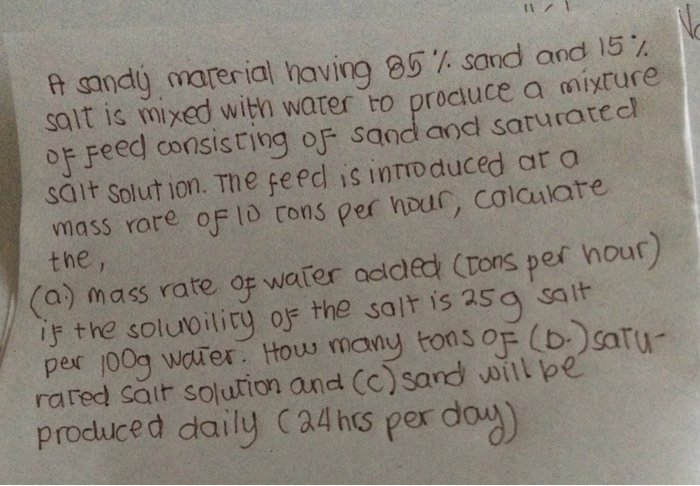 A sandy material having 85% sand and 15%
salt is mixed with water to produce a mixture
of feed consisting of sand and saturated
salt solution. The feed is introduced at a
mass rate of 10 tons per hour, calculate
the,
(a.) mass rate of water added (tons per hour)
if the solubility of the salt is 25g salt
per 100g water. How many tons of (b.) satu-
rated salt solution and (c) sand will be
produced daily (24hrs per day)